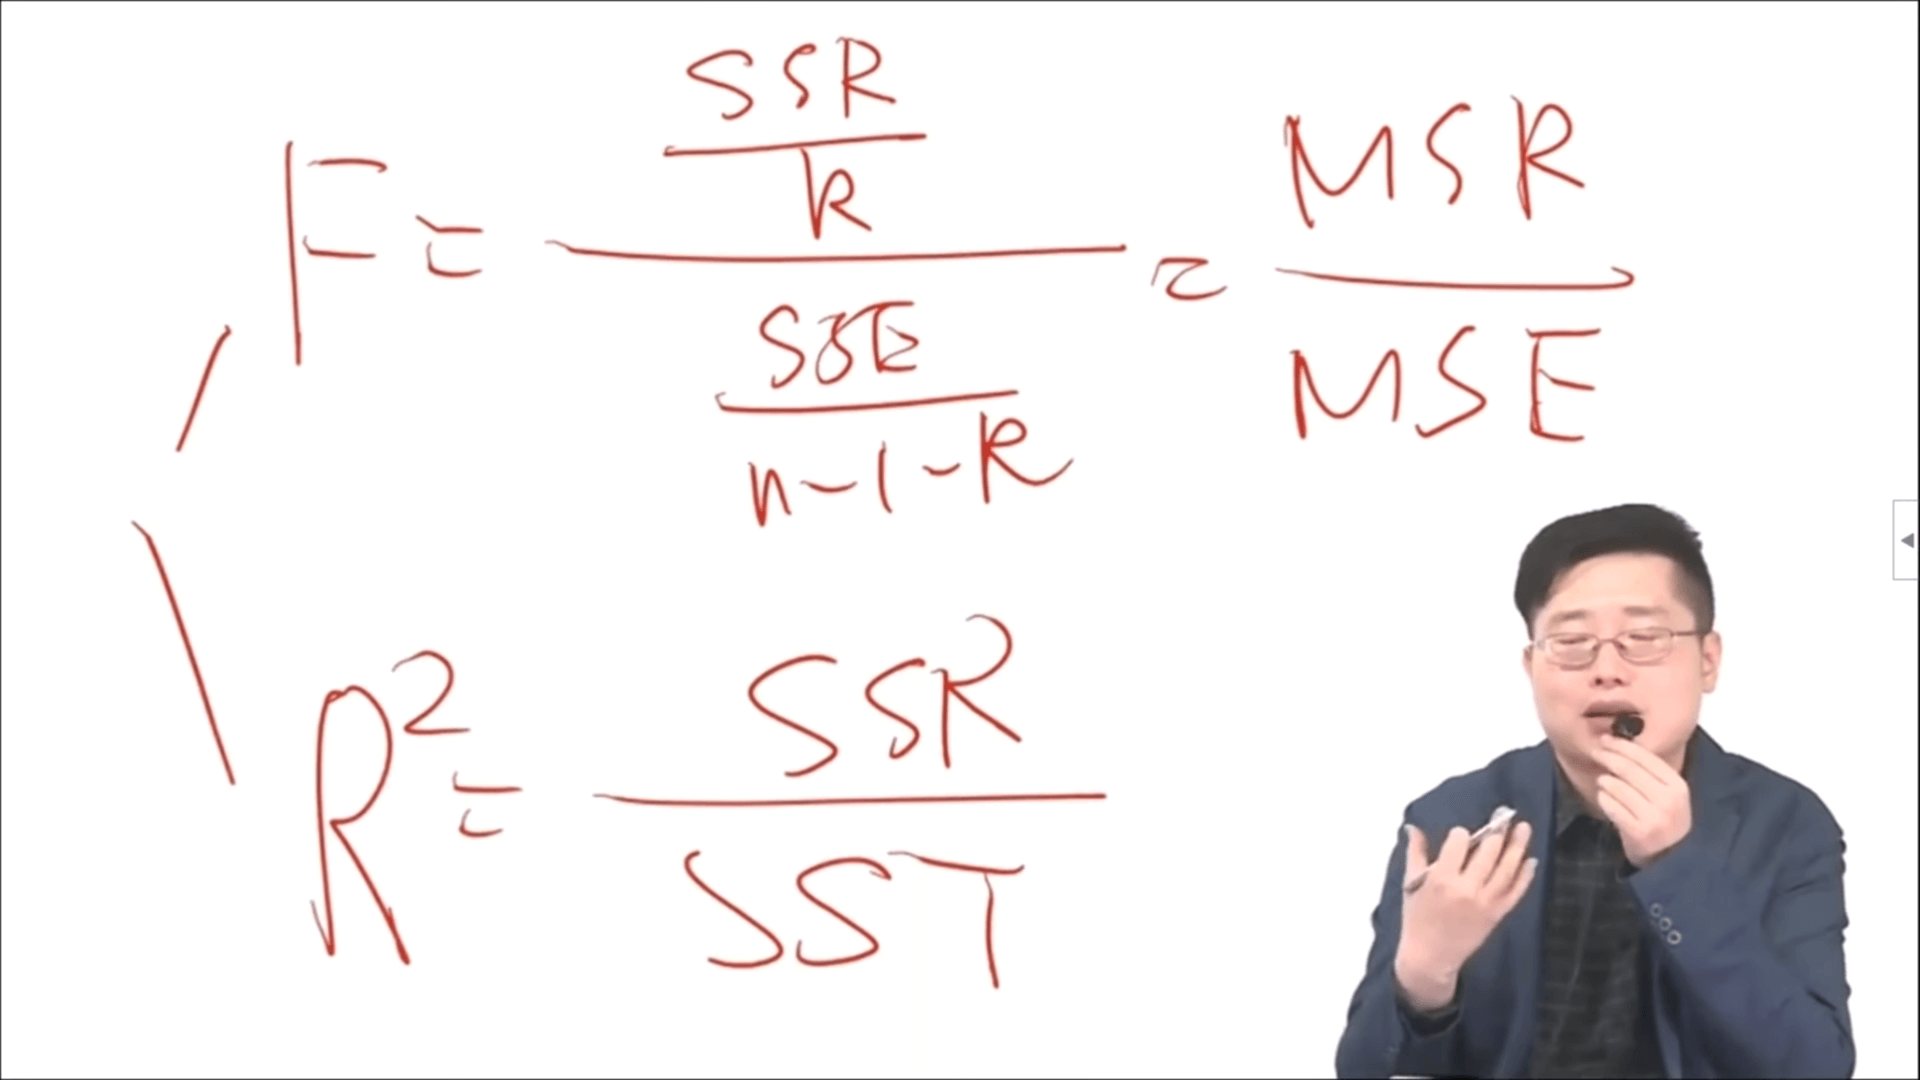 F = \frac{\frac{SSR}{k}}{\frac{SSE}{n-1-k}} = \frac{MSR}{MSE}
R² = \frac{SSR}{SST}